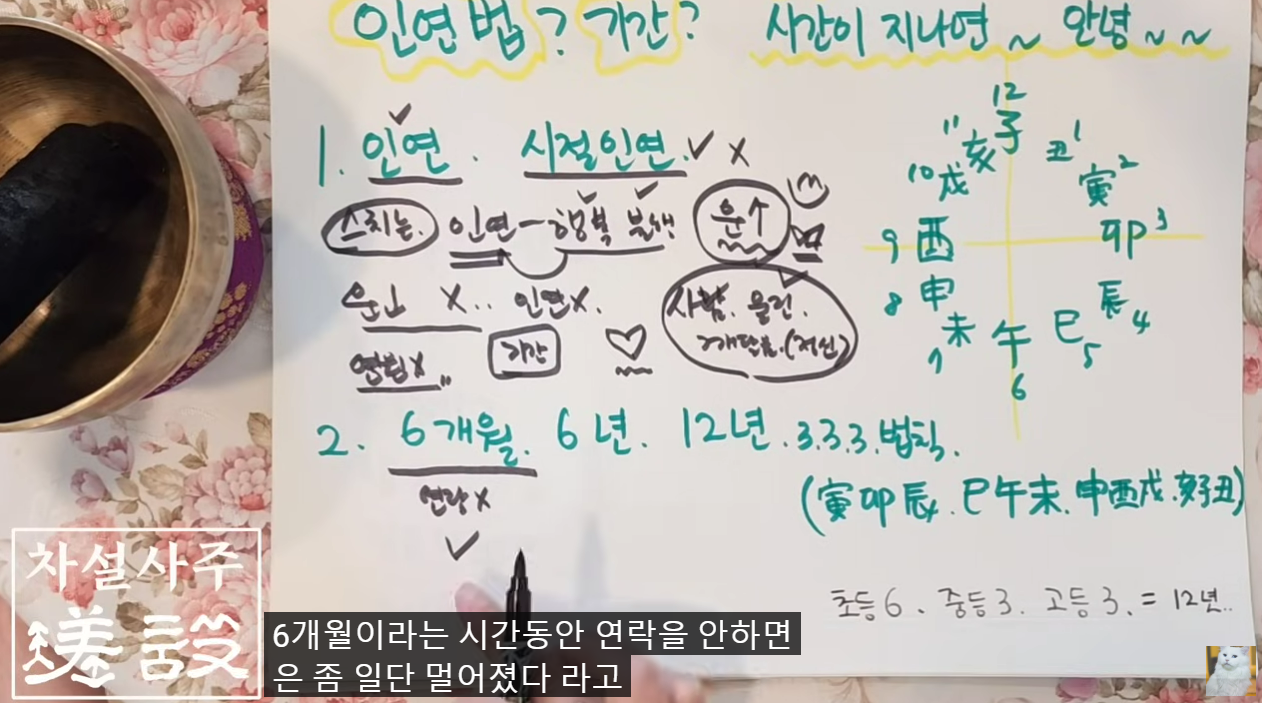 인연법? 기간? 시간이 지나면~ 안녕~~
1. 인연. 시절인연. ✓ X
스치는. 인연 - 행복 불행 운↑
운↓ X.. 인연X. 사람. 물건.
기간
2. 6개월. 6년. 12년. 3.3.3.법칙.
연락X
12 子
丑 1
寅 2
卯 3
辰 4
巳 5
午 6
未 7
申 8
酉 9
戌 10
亥 11
(寅卯辰. 巳午未. 申酉戌. 亥子丑)
초등6. 중등3. 고등3. = 12년..
차설사주
設
6개월이라는 시간동안 연락을 안하면
은 좀 일단 멀어졌다 라고